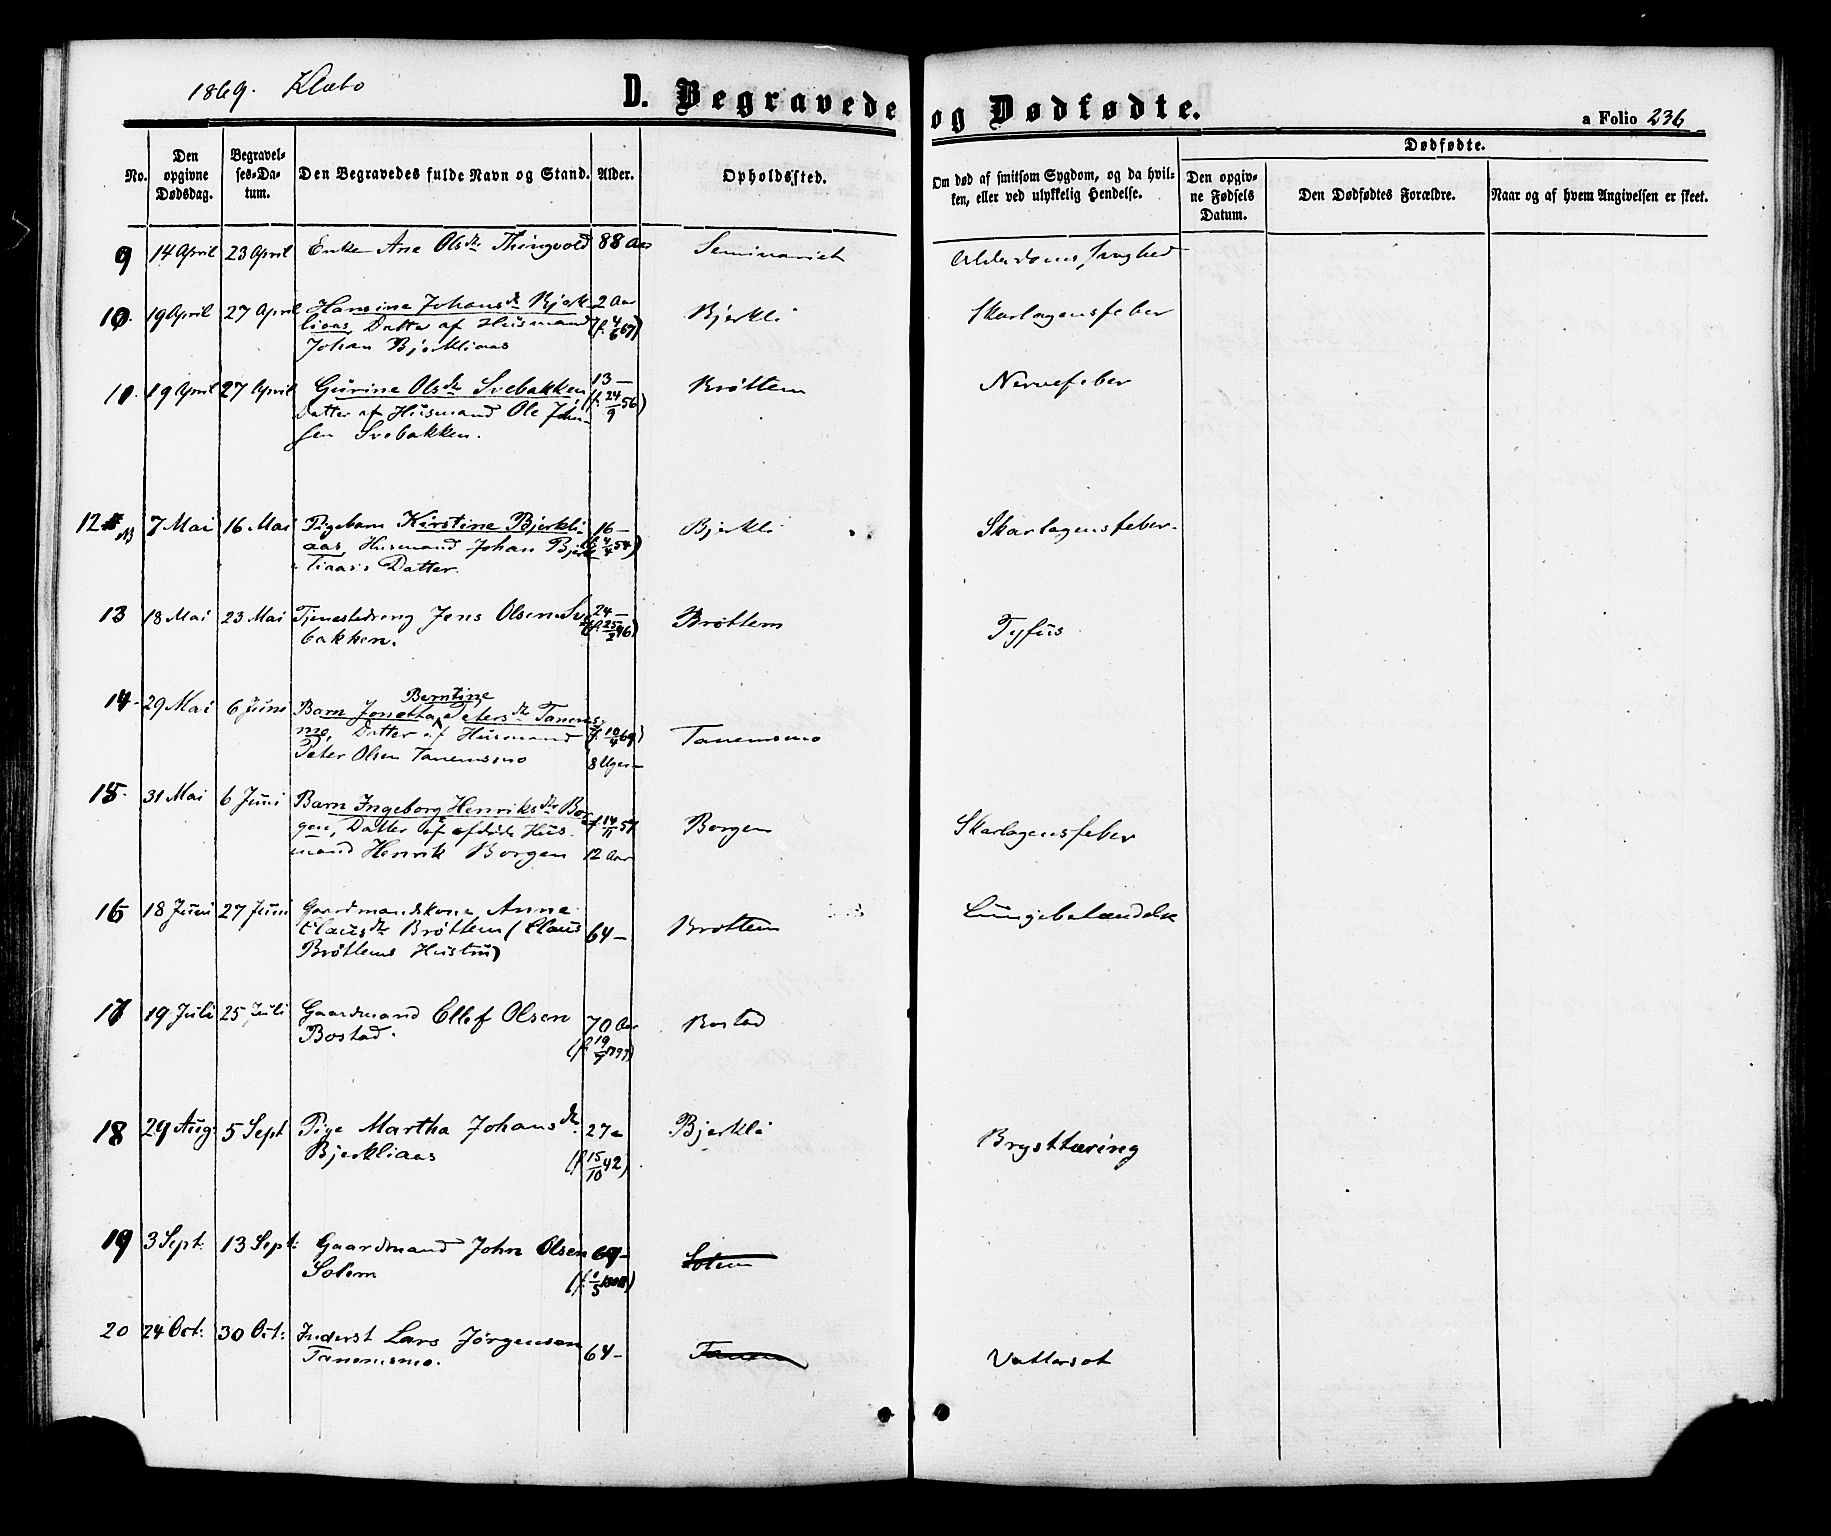 1869. Klæbo
D. Begravede og Dødfødte.
a Folio 236
No.
Den opgivne Dødsdag.
Begravel-ses-Da-tum.
Den Begravedes fulde Navn og Stand.
Alder.
Opholdssted.
Om død af smitsom Sygdom, og da hvil-
ken, eller ved ulykkelig Hendelse.
Dødfødte.
Den opgiv-ne Fødsels Datum.
Den Dødfødtes Forældre.
Naar og af hvem Angivelsen er skeet.
9 14 April 23 April Enke Ane Olsdr Thingvold 88 Aar Seminariet Alderdoms
10. 19 April 27 April Hansine Johansdr Bjerk- 2 Aar Bjerkli Skarlagensfeber
liaas, Datter af Husmand (f. 4/6 67)
Johan Bjerkliaas
11. 19 April 27 April Gurine Olsdr Svebakken 13 — Brøttem Nervefeber
Datter af Husmand Ole John- (f. 24/9 56)
sen Svebakken.
12 7 Mai 16 Mai Pigebarn Kirstine Bjerkli- 16 — Bjerkli Skarlagensfeber.
aas, Husmand Johan Bjerk
liaas's Datter.
13 18 Mai 23 Mai Tjenestedreng Jens Olsen Sve 24 — Brøttem Tyfus
bakken. (f. 25/2 46)
Berntine
14. 29 Mai 6 Juni Barn Jonetta Petersdr Tanems-
mo, Datter af Husmand (f. 10/4 69) Tanemsmo
Peter Olsen Tanemsmo 8 Uger —
15. 31 Mai 6 Juni Barn Ingeborg Henriksdr Bor-
gen, Datter af afdøde Hus- f. 14/11 57 Borgen Skarlagensfeber
mand Henrik Borgen 12 Aar
16 18 Juni 27 Juni Gaardmandskone Anne Lungebetændelse
Clausdr Brøttem (Claus 64 — Brøttem
Brøttems Hustru)
17 19 Juli 25 Juli Gaardmand Ellef Olsen 70 Aar Bostad
Bostad. (f. 19/9 1799)
18 29 Aug: 5 Sept Pige Martha Johansdr 27 Bjerkli Brysttæring
Bjerkliaas (f. 15/10 42)
19 3 Sept: 13 Sept: Gaardmand John Olsen 69 — Solem
Solem
20 24 Oct: 30 Oct: Inderst Lars Jørgensen 64 — Tanem Vattersot
Tanemsmo.